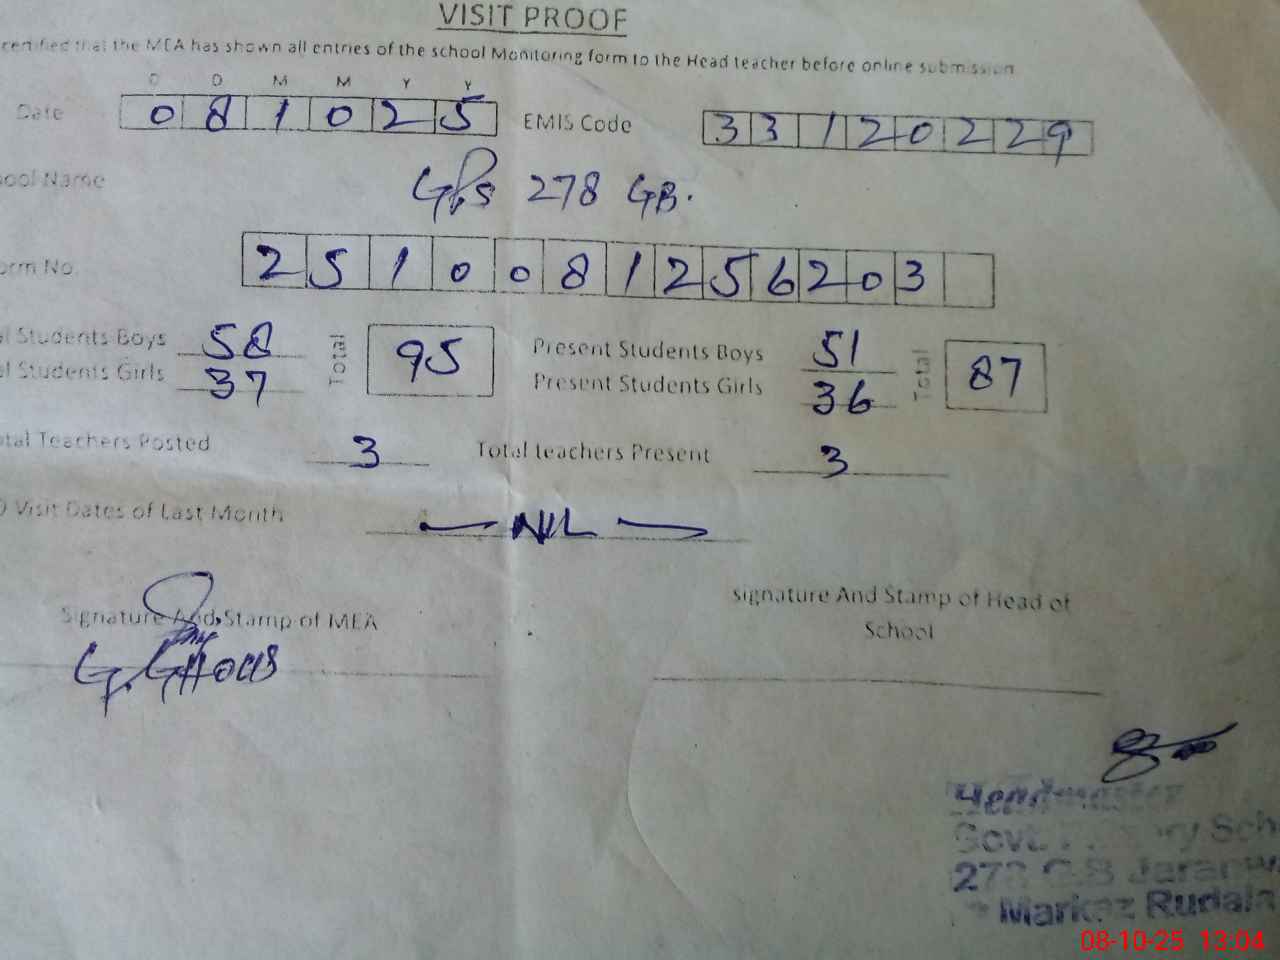 VISIT PROOF
certified that the MEA has shown all entries of the school Monitoring form to the Head teacher before online submission
D D M M Y Y
Date 0 8 1 0 2 5 EMIS Code 3 3 1 2 0 2 2 9
ool Name GPS 278 GB.
orm No. 2 5 1 0 0 8 1 2 5 6 2 0 3
l Students Boys 58 Total 95 Present Students Boys 51 Total 87
l Students Girls 37 Present Students Girls 36
otal Teachers Posted 3 Total teachers Present 3
O Visit Dates of Last Month NIL
Signature And Stamp of MEA signature And Stamp of Head of
School
G. GHous
Headmaster
Govt. Sch
278 G.B Jaranw
Markaz Rudala
08-10-25 13:04